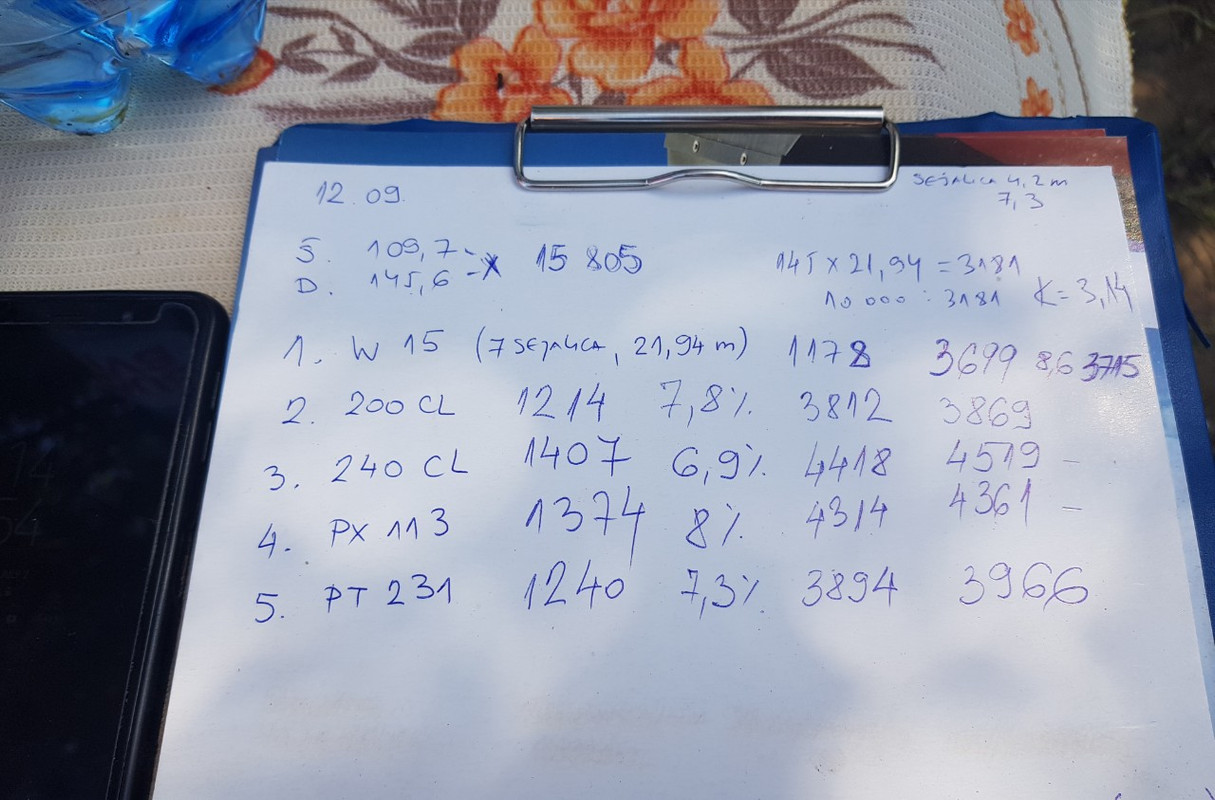 12.09.
SEJALICA 4,2m
7,3
Š. 109,7
D. 145,6 = X 15 805
145 x 21,94 = 3181
10 000 : 3181 K = 3,14
1. W 15 (7 SEJALICA, 21,94 m) 1178 3699 8,6 3715
2. 200 CL 1214 7,8% 3812 3869
3. 240 CL 1407 6,9% 4418 4519 -
4. PX 113 1374 8% 4314 4361 -
5. PT 231 1240 7,3% 3894 3966